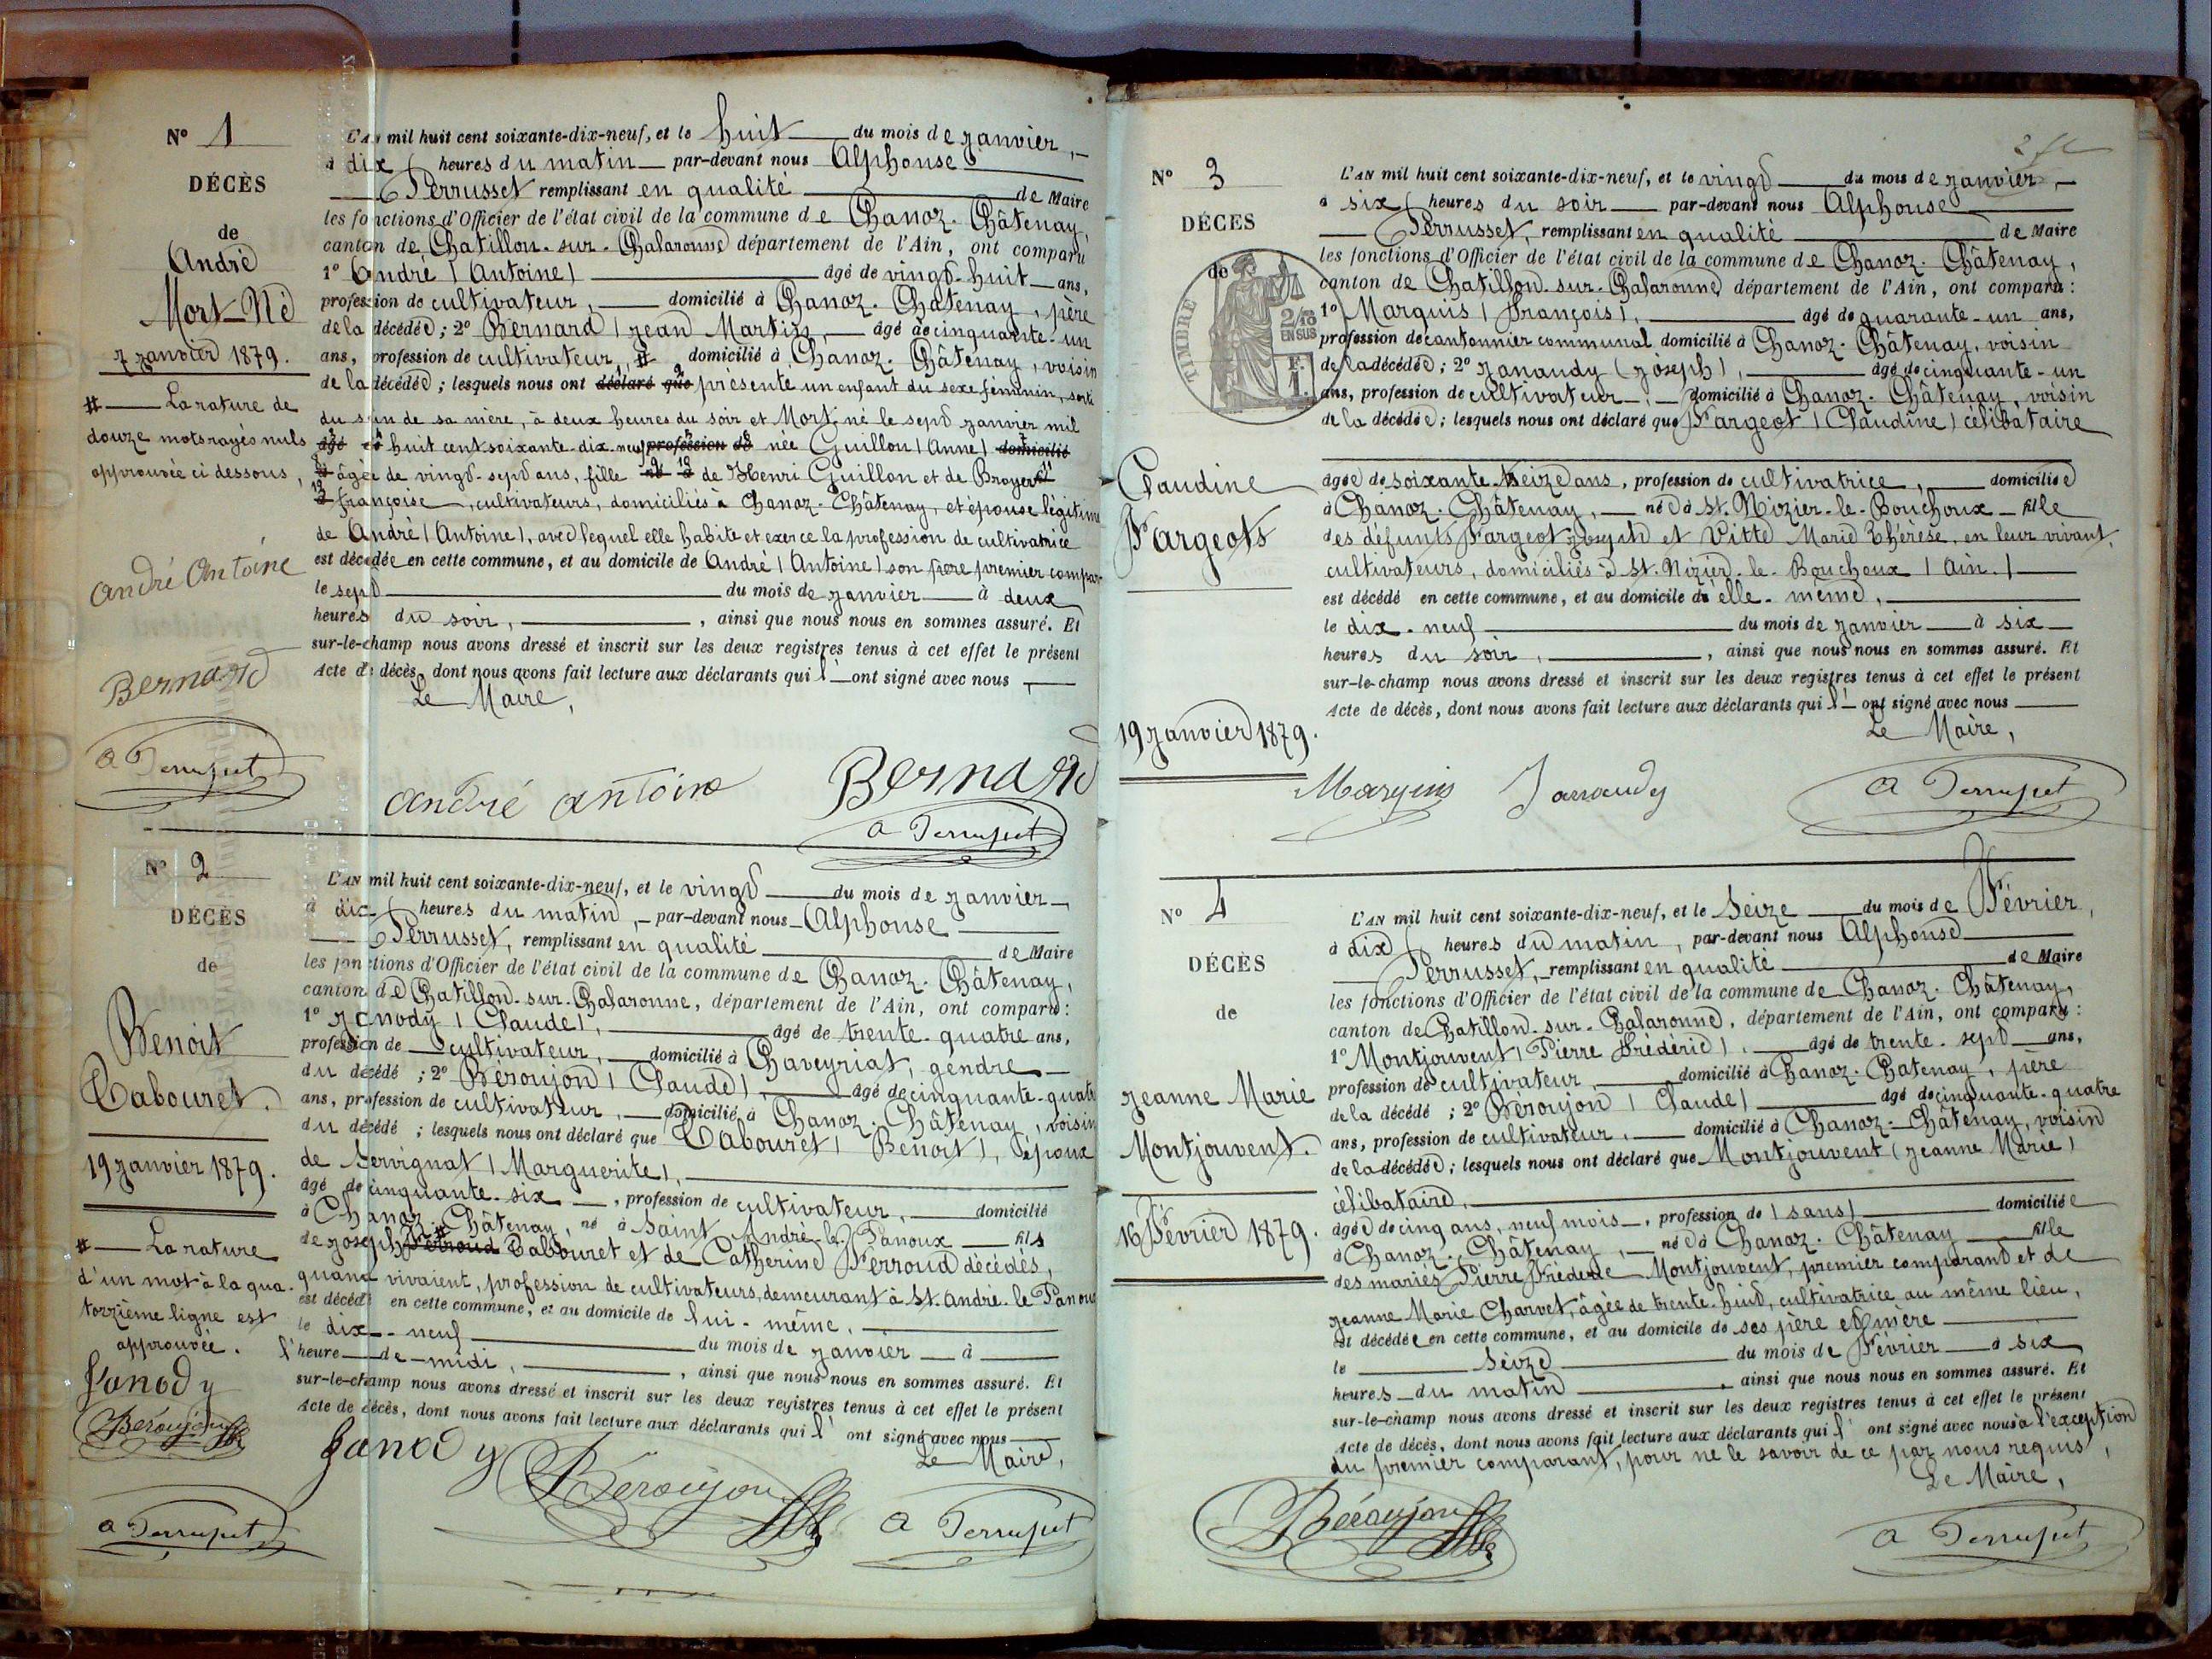 N° 1
DÉCÈS
de
André
Mort-Né
7 janvier 1879.
# — La rature de
douze mots rayés nuls
approuvée ci dessous,
André Antoine
Bernard
L'AN mil huit cent soixante-dix-neuf, et le huit du mois de janvier,
à dix heures du matin par-devant nous Alphonse
Perrusset remplissant en qualité de Maire
les fonctions d'Officier de l'état civil de la commune de Chanoz-Châtenay,
canton de Chatillon-sur-Chalaronne département de l'Ain, ont comparu
1° André (Antoine) âgé de vingt-huit ans,
profession de cultivateur, domicilié à Chanoz-Châtenay, père
de la décédée; 2° Bernard (Jean Martin, âgé de cinquante-un
ans, profession de cultivateur, # domicilié à Chanoz-Châtenay, voisin
de la décédée; lesquels nous ont déclaré que présenté un enfant du sexe féminin, sorti
du sein de sa mère, à deux heures du soir et Mort-né le sept janvier mil
âgé de huit cent soixante-dix-neuf profession de née Guillon (Anne) domicilié
à âgée de vingt-sept ans, fille né à de Henri Guillon et de Broyer
Françoise, cultivateurs, domiciliés à Chanoz-Châtenay, et épouse légitime
de André (Antoine), avec lequel elle habite et exerce la profession de cultivatrice
est décédée en cette commune, et au domicile de André (Antoine) son père premier compar
le sept du mois de janvier à deux
heures du soir, , ainsi que nous nous en sommes assuré. Et
sur-le-champ nous avons dressé et inscrit sur les deux registres tenus à cet effet le présent
Acte de décès, dont nous avons fait lecture aux déclarants qui l' ont signé avec nous
Le Maire,
André Antoine Bernard
N° 2
DÉCÈS
de
Benoit
Tabouret.
19 janvier 1879.
# — La rature
d'un mot à la qua
torzième ligne est
approuvée.
Janody
Béroujon
L'AN mil huit cent soixante-dix-neuf, et le vingt du mois de janvier
à dix heures du matin, par-devant nous Alphonse
Perrusset, remplissant en qualité de Maire
les fonctions d'Officier de l'état civil de la commune de Chanoz-Châtenay,
canton de Chatillon-sur-Chalaronne, département de l'Ain, ont comparu:
1° Janody (Claude), âgé de trente-quatre ans,
profession de cultivateur, domicilié à Chaveyriat, gendre
du décédé; 2° Béroujon (Claude), âgé de cinquante-quatre
ans, profession de cultivateur, domicilié à Chanoz-Châtenay, voisin
du décédé; lesquels nous ont déclaré que Tabouret (Benoit), époux
de Servignat (Marguerite),
âgé de cinquante-six , profession de cultivateur, domicilié
à Chanoz-Châtenay, né à Saint André-le-Panoux fils
de Joseph Ferroud # Tabouret et de Catherine Ferroud décédés,
quand vivaient, profession de cultivateurs, demeurant à St. André-le-Panoux
est décédé en cette commune, et au domicile de lui-même,
le dix-neuf du mois de janvier à
l'heure de midi, , ainsi que nous nous en sommes assuré. Et
sur-le-champ nous avons dressé et inscrit sur les deux registres tenus à cet effet le présent
Acte de décès, dont nous avons fait lecture aux déclarants qui l' ont signé avec nous
Le Maire,
Janody Béroujon
N° 3
DÉCÈS
de
TIMBRE
2/10
EN SUS
Claudine
Fargeots
19 janvier 1879.
L'AN mil huit cent soixante-dix-neuf, et le vingt du mois de janvier,
à six heures du soir par-devant nous Alphonse
Perrusset, remplissant en qualité de Maire
les fonctions d'Officier de l'état civil de la commune de Chanoz-Châtenay,
canton de Chatillon-sur-Chalaronne département de l'Ain, ont comparu:
1° Marquis (François), âgé de quarante-un ans,
profession de cantonnier communal domicilié à Chanoz-Châtenay, voisin
de la décédée; 2° Janaudy (Joseph), âgé de cinquante-un
ans, profession de cultivateur, domicilié à Chanoz-Châtenay, voisin
de la décédée; lesquels nous ont déclaré que Fargeot (Claudine) célibataire
âgée de soixante-treize ans, profession de cultivatrice, domiciliée
à Chanoz-Châtenay, née à St. Nizier-le-Bouchoux fille
des défunts Fargeot Joseph et Vitte Marie Thérèse, en leur vivant,
cultivateurs, domiciliés à St. Nizier-le-Bouchoux (Ain.)
est décédé en cette commune, et au domicile de elle-même,
le dix-neuf du mois de janvier à six
heures du soir, , ainsi que nous nous en sommes assuré. Et
sur-le-champ nous avons dressé et inscrit sur les deux registres tenus à cet effet le présent
Acte de décès, dont nous avons fait lecture aux déclarants qui l' ont signé avec nous
Le Maire,
Marquis Janaudy
N° 4
DÉCÈS
de
Jeanne Marie
Montjouvent.
16 Février 1879.
L'AN mil huit cent soixante-dix-neuf, et le Seize du mois de Février,
à dix heures du matin, par-devant nous Alphonse
Perrusset, remplissant en qualité de Maire
les fonctions d'Officier de l'état civil de la commune de Chanoz-Châtenay,
canton de Chatillon-sur-Chalaronne, département de l'Ain, ont comparu:
1° Montjouvent (Pierre Frédéric), âgé de trente-sept ans,
profession de cultivateur, domicilié à Chanoz-Chatenay, père
de la décédé; 2° Béroujon (Claude) âgé de cinquante-quatre
ans, profession de cultivateur, domicilié à Chanoz-Châtenay, voisin
de la décédée; lesquels nous ont déclaré que Montjouvent (Jeanne Marie)
célibataire,
âgée de cinq ans, neuf mois, profession de (sans) domiciliée
à Chanoz-Châtenay, née à Chanoz-Châtenay fille
des mariés Pierre Fréderic Montjouvent, premier comparant et de
Jeanne Marie Charvet, âgée de trente-huit, cultivatrice au même lieu,
est décédée en cette commune, et au domicile de ses père et mère
le Seize du mois de Février à six
heures du matin , ainsi que nous nous en sommes assuré. Et
sur-le-champ nous avons dressé et inscrit sur les deux registres tenus à cet effet le présent
Acte de décès, dont nous avons fait lecture aux déclarants qui l' ont signé avec nous à l'exception
du premier comparant, pour ne le savoir de ce par nous requis,
Le Maire,
Béroujon